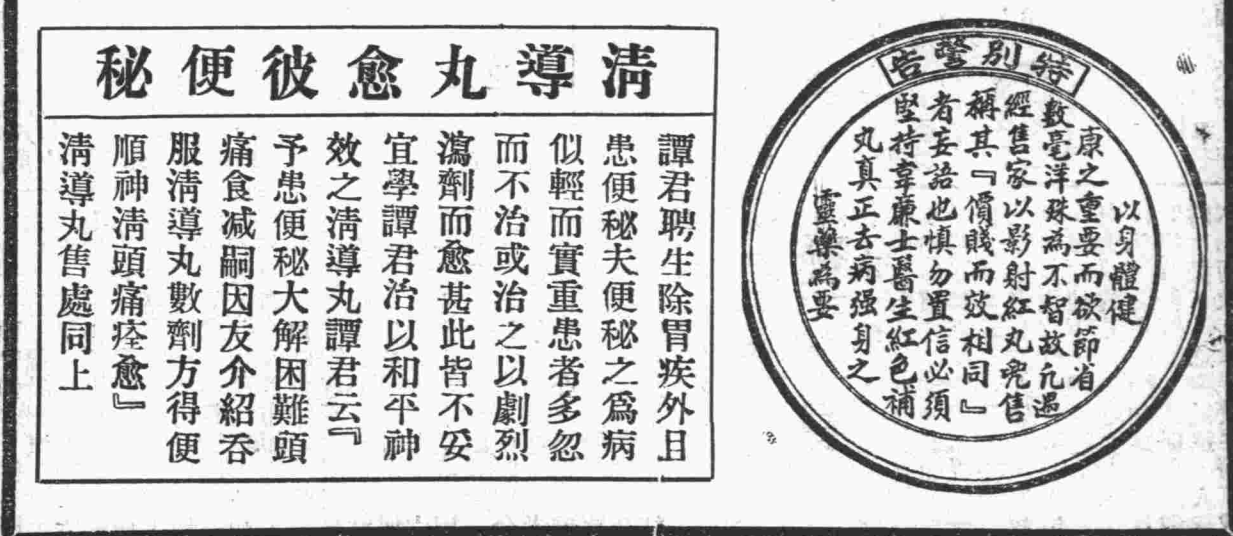 特別警告
以身體健
康之重要而欲節省
數毫洋殊為不智故凡遇
經售家以影射紅丸兜售
稱其『價賤而效相同』
者妄語也慎勿置信必須
堅持韋廉士醫生紅色補
丸真正去病强身之
靈藥為要
清導丸愈彼便秘
譚君聘生除胃疾外且
患便秘夫便秘之爲病
似輕而實重患者多忽
而不治或治之以劇烈
瀉劑而愈甚此皆不妥
宜學譚君治以和平神
效之清導丸譚君云『
予患便秘大解困難頭
痛食减嗣因友介紹吞
服清導丸數劑方得便
順神清頭痛痊愈』
清導丸售處同上